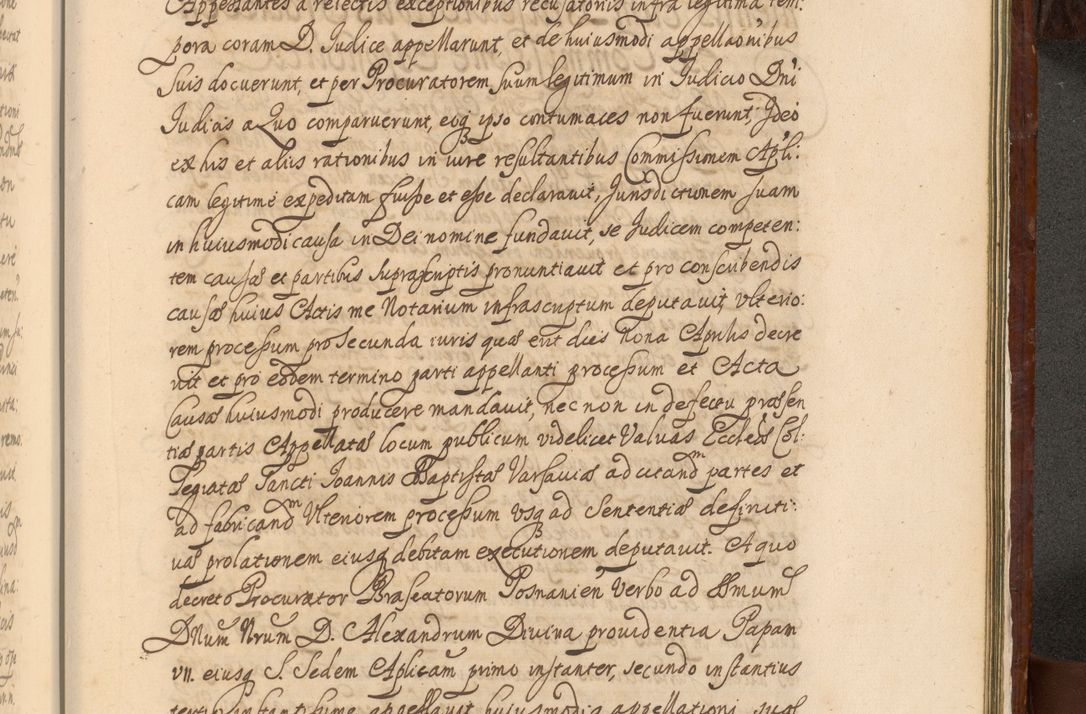 Appellantes a relectis exceptionibus recusatoriis infra legitima tem:
pora coram D. Iudice appellarunt, et de huiusmodi appellaõnibus
suis docuerunt, et per Procuratorem suum legitimum in Iudicio Dñi
Iudicis a Quo comparuerunt, eoq ipso contumaces non fuerunt; Ideo
ex his et aliis rationibus in iure resultantibus Commissionem Apli:
cam legitime expeditam fuisse et esse declaravit, Iurisdictionem suam
in huiusmodi causa in Dei nomine fundavit, se Iudicem competen:
tem causæ et partibus suprascriptis pronuntiavit et pro conscribendis
causæ huius Actis me Notarium infrascriptum deputavit, ulterio:
rem processum pro secunda iuris quæ erit dies nona Aprilis decre
vit et pro eodem termino parti appellanti processum et Acta
Causæ huiusmodi producere mandavit, nec non in defectu præsen
tiæ partis Appellatæ locum publicum videlicet Valvas Ecclæ Col:
legiatæ Sancti Ioannis Baptistæ Varsaviæ ad citand partes et
ad fabricand Ulteriorem processum usq ad Sententiæ definiti:
væ prolationem eiusq debitam executionem deputavit. A quo
decreto Procurator Braseatorum Posnanień Verbo ad SSmum
DNum Nrum D. Alexandrum Divina providentia Papam
VII. eiusq S. Sedem Aplicam primo instanter, secundo instantius
tertio instantissime appellavit huiusmodi appellationi suæ